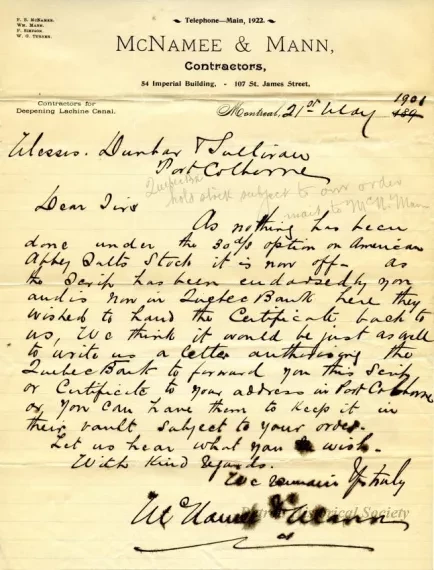 F. B. McNamee.
Wm. Mann.
F. Simpson.
Telephone—Main, 1922.
McNamee & Mann,
Contractors,
54 Imperial Building, - 107 St. James Street.
Contractors for
Deepening Lachine Canal.
Montreal, 21st May 1901
189
Messrs. Dunbar & Sullivan
Port Colborne
hold stock subject to our order
mail to McN. Mann
Dear Sirs
As nothing has been
done under the 30 d/s option on American
Abbey Salts Stock it is now off - as
the Scrip has been endorsed by you
and is now in Quebec Bank here they
wished to hand the Certificate back to
us, We think it would be just as well
to write us a letter authorising the
Quebec Bank to forward you this Scrip
or Certificate to your address in Port Colborne
or you can have them to keep it in
their vault subject to your order.
Let us hear what you wish.
With kind regards.
We remain Yrs truly
McNamee & Mann
Historical Society